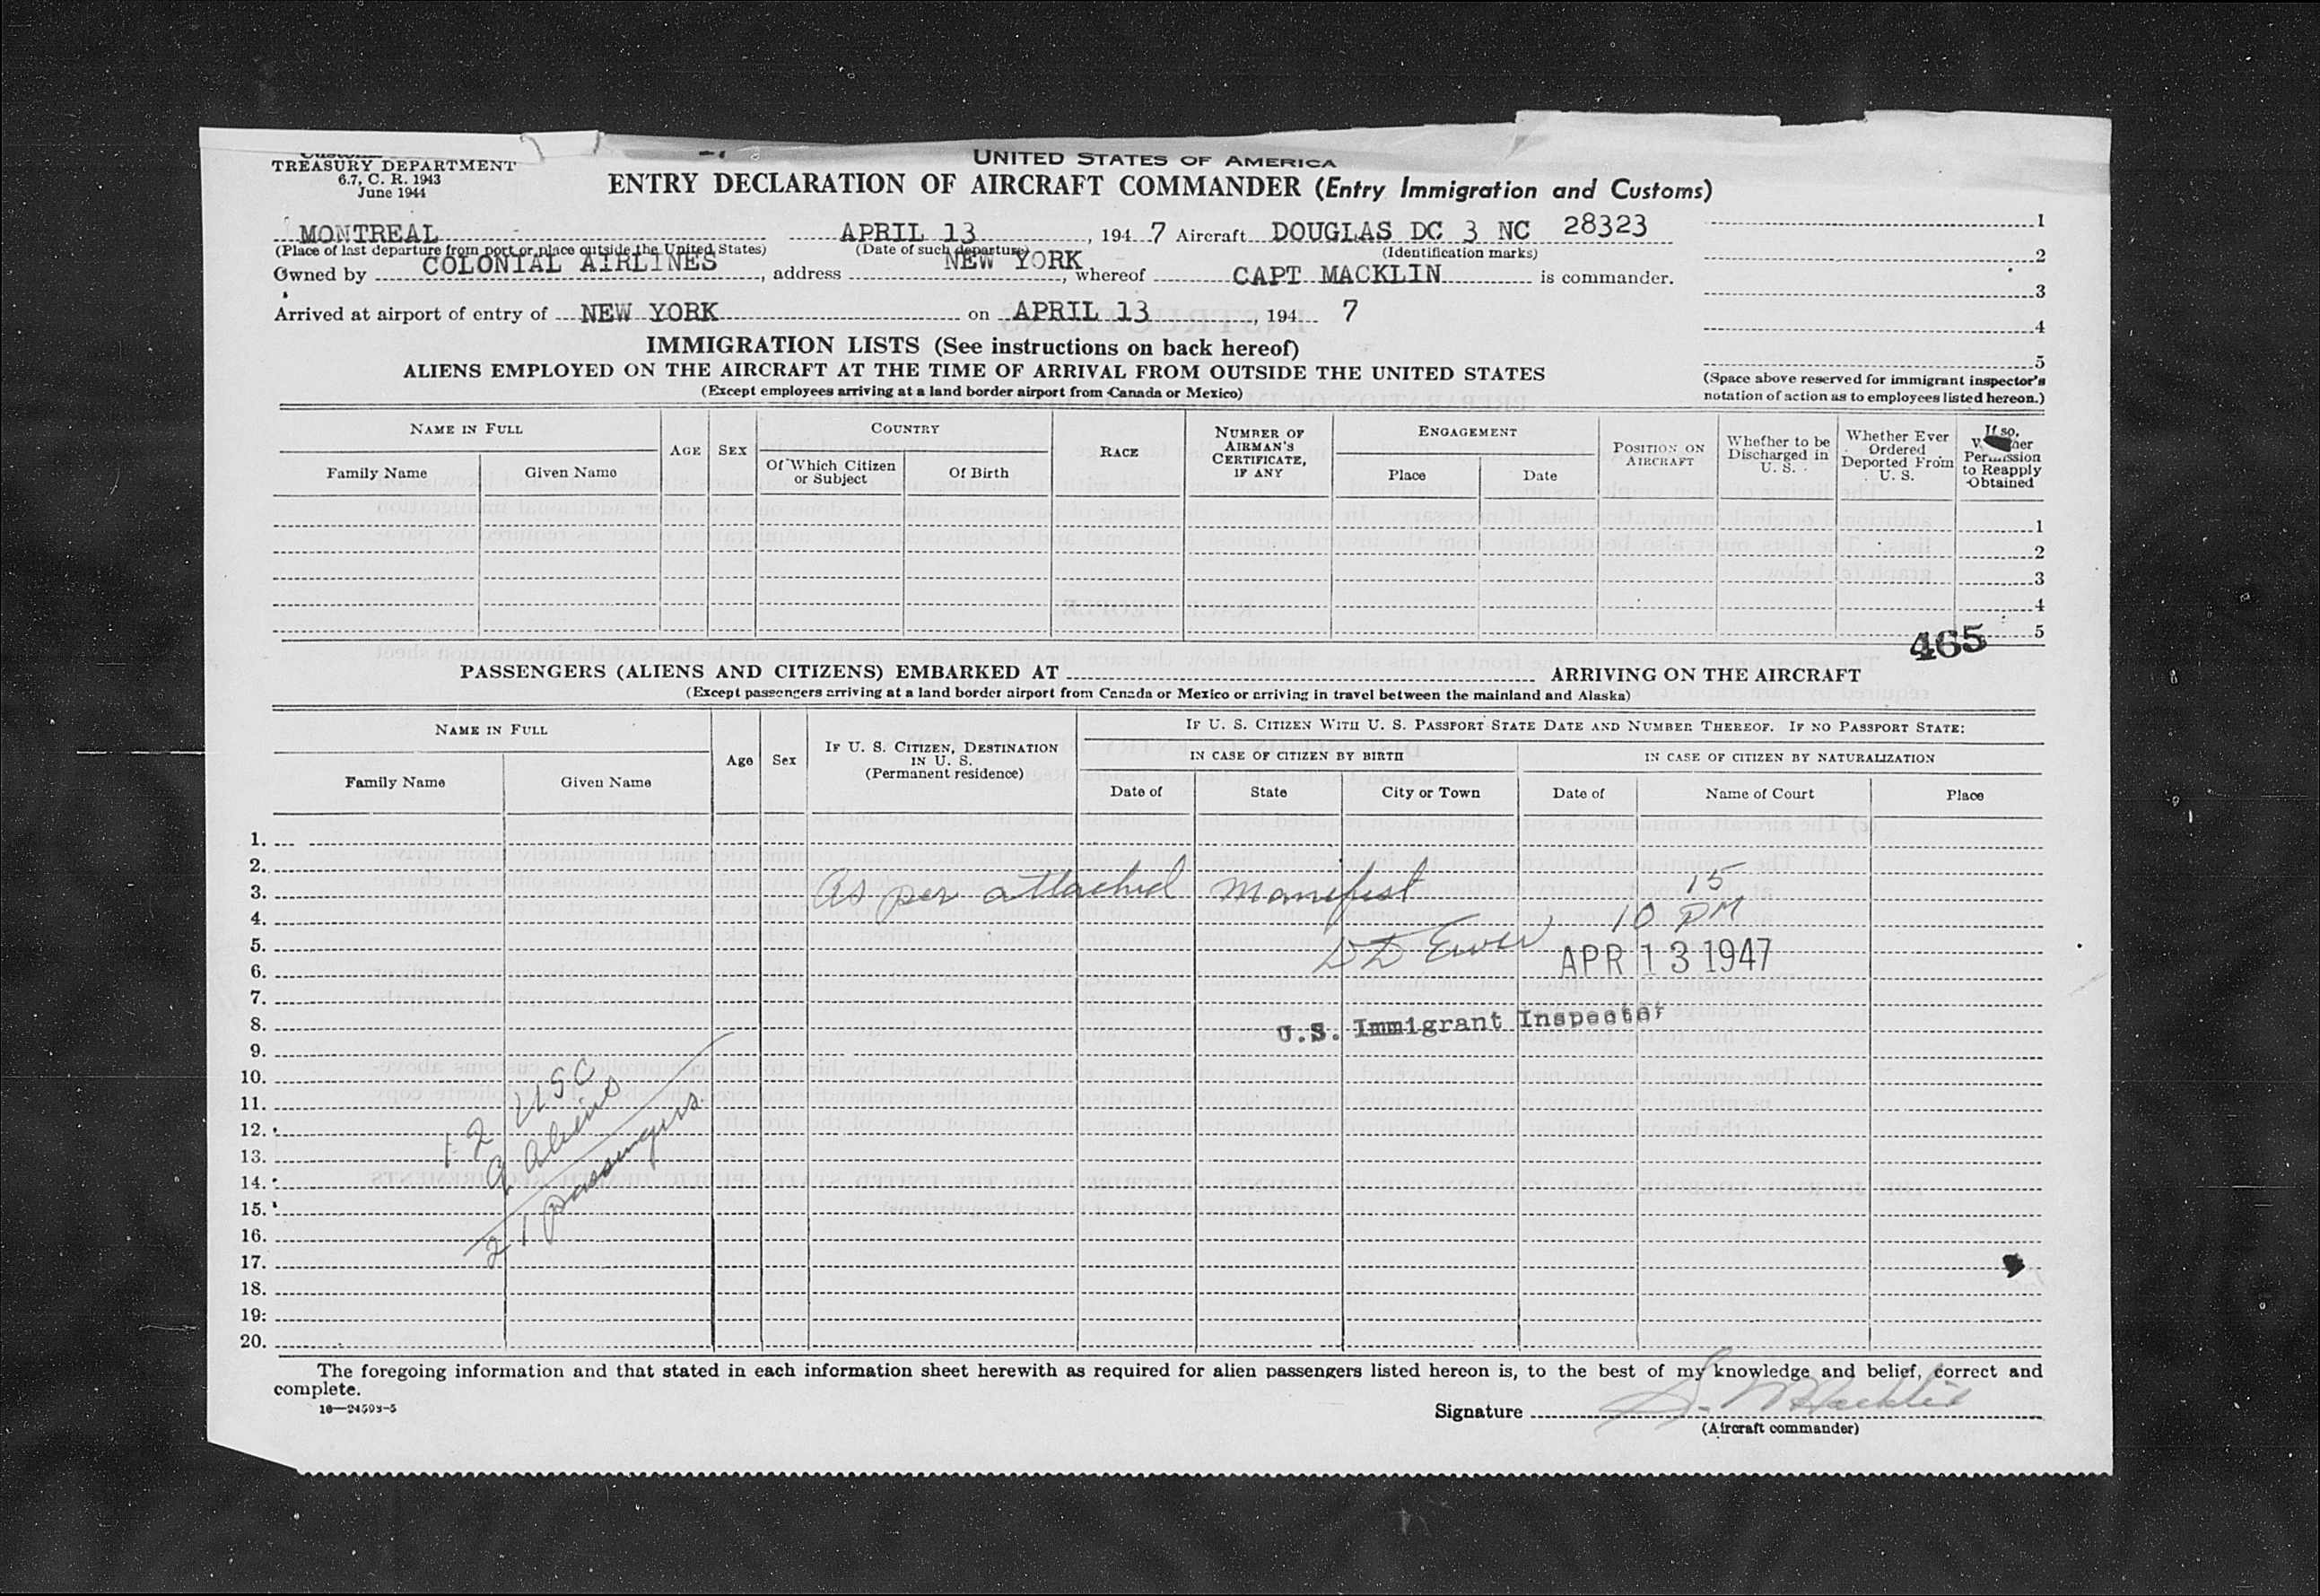 TREASURY DEPARTMENT
6.7, C. R. 1943
June 1944
UNITED STATES OF AMERICA
ENTRY DECLARATION OF AIRCRAFT COMMANDER (Entry Immigration and Customs)
MONTREAL APRIL 13, 194 7 Aircraft DOUGLAS DC 3 NC 28323
(Place of last departure from port or place outside the United States) (Date of such departure) (Identification marks)
Owned by COLONIAL AIRLINES, address NEW YORK, whereof CAPT MACKLIN is commander.
Arrived at airport of entry of NEW YORK on APRIL 13, 194 7
1
2
3
4
5
(Space above reserved for immigrant inspector's
notation of action as to employees listed hereon.)
IMMIGRATION LISTS (See instructions on back hereof)
ALIENS EMPLOYED ON THE AIRCRAFT AT THE TIME OF ARRIVAL FROM OUTSIDE THE UNITED STATES
(Except employees arriving at a land border airport from Canada or Mexico)
NAME IN FULL
Family Name
Given Name
AGE
SEX
COUNTRY
Of Which Citizen
or Subject
Of Birth
RACE
NUMBER OF
AIRMAN'S
CERTIFICATE,
IF ANY
ENGAGEMENT
Place
Date
POSITION ON
AIRCRAFT
Whether to be
Discharged in
U. S.
Whether Ever
Ordered
Deported From
U. S.
If so,
Permission
to Reapply
Obtained
1
2
3
4
5
465
PASSENGERS (ALIENS AND CITIZENS) EMBARKED AT ARRIVING ON THE AIRCRAFT
(Except passengers arriving at a land border airport from Canada or Mexico or arriving in travel between the mainland and Alaska)
NAME IN FULL
Family Name
Given Name
Age
Sex
IF U. S. CITIZEN, DESTINATION
IN U. S.
(Permanent residence)
IF U. S. CITIZEN WITH U. S. PASSPORT STATE DATE AND NUMBER THEREOF. IF NO PASSPORT STATE:
IN CASE OF CITIZEN BY BIRTH
Date of
State
City or Town
IN CASE OF CITIZEN BY NATURALIZATION
Date of
Name of Court
Place
1.
2.
3.
4.
5.
6.
7.
8.
9.
10.
11.
12.
13.
14.
15.
16.
17.
18.
19.
20.
As per attached Manifest
10 15 PM
APR 13 1947
U.S. Immigrant Inspector
12 USC
9 aliens
21 passengers
The foregoing information and that stated in each information sheet herewith as required for alien passengers listed hereon is, to the best of my knowledge and belief, correct and
complete.
16—24593-5
Signature S. Macklin
(Aircraft commander)